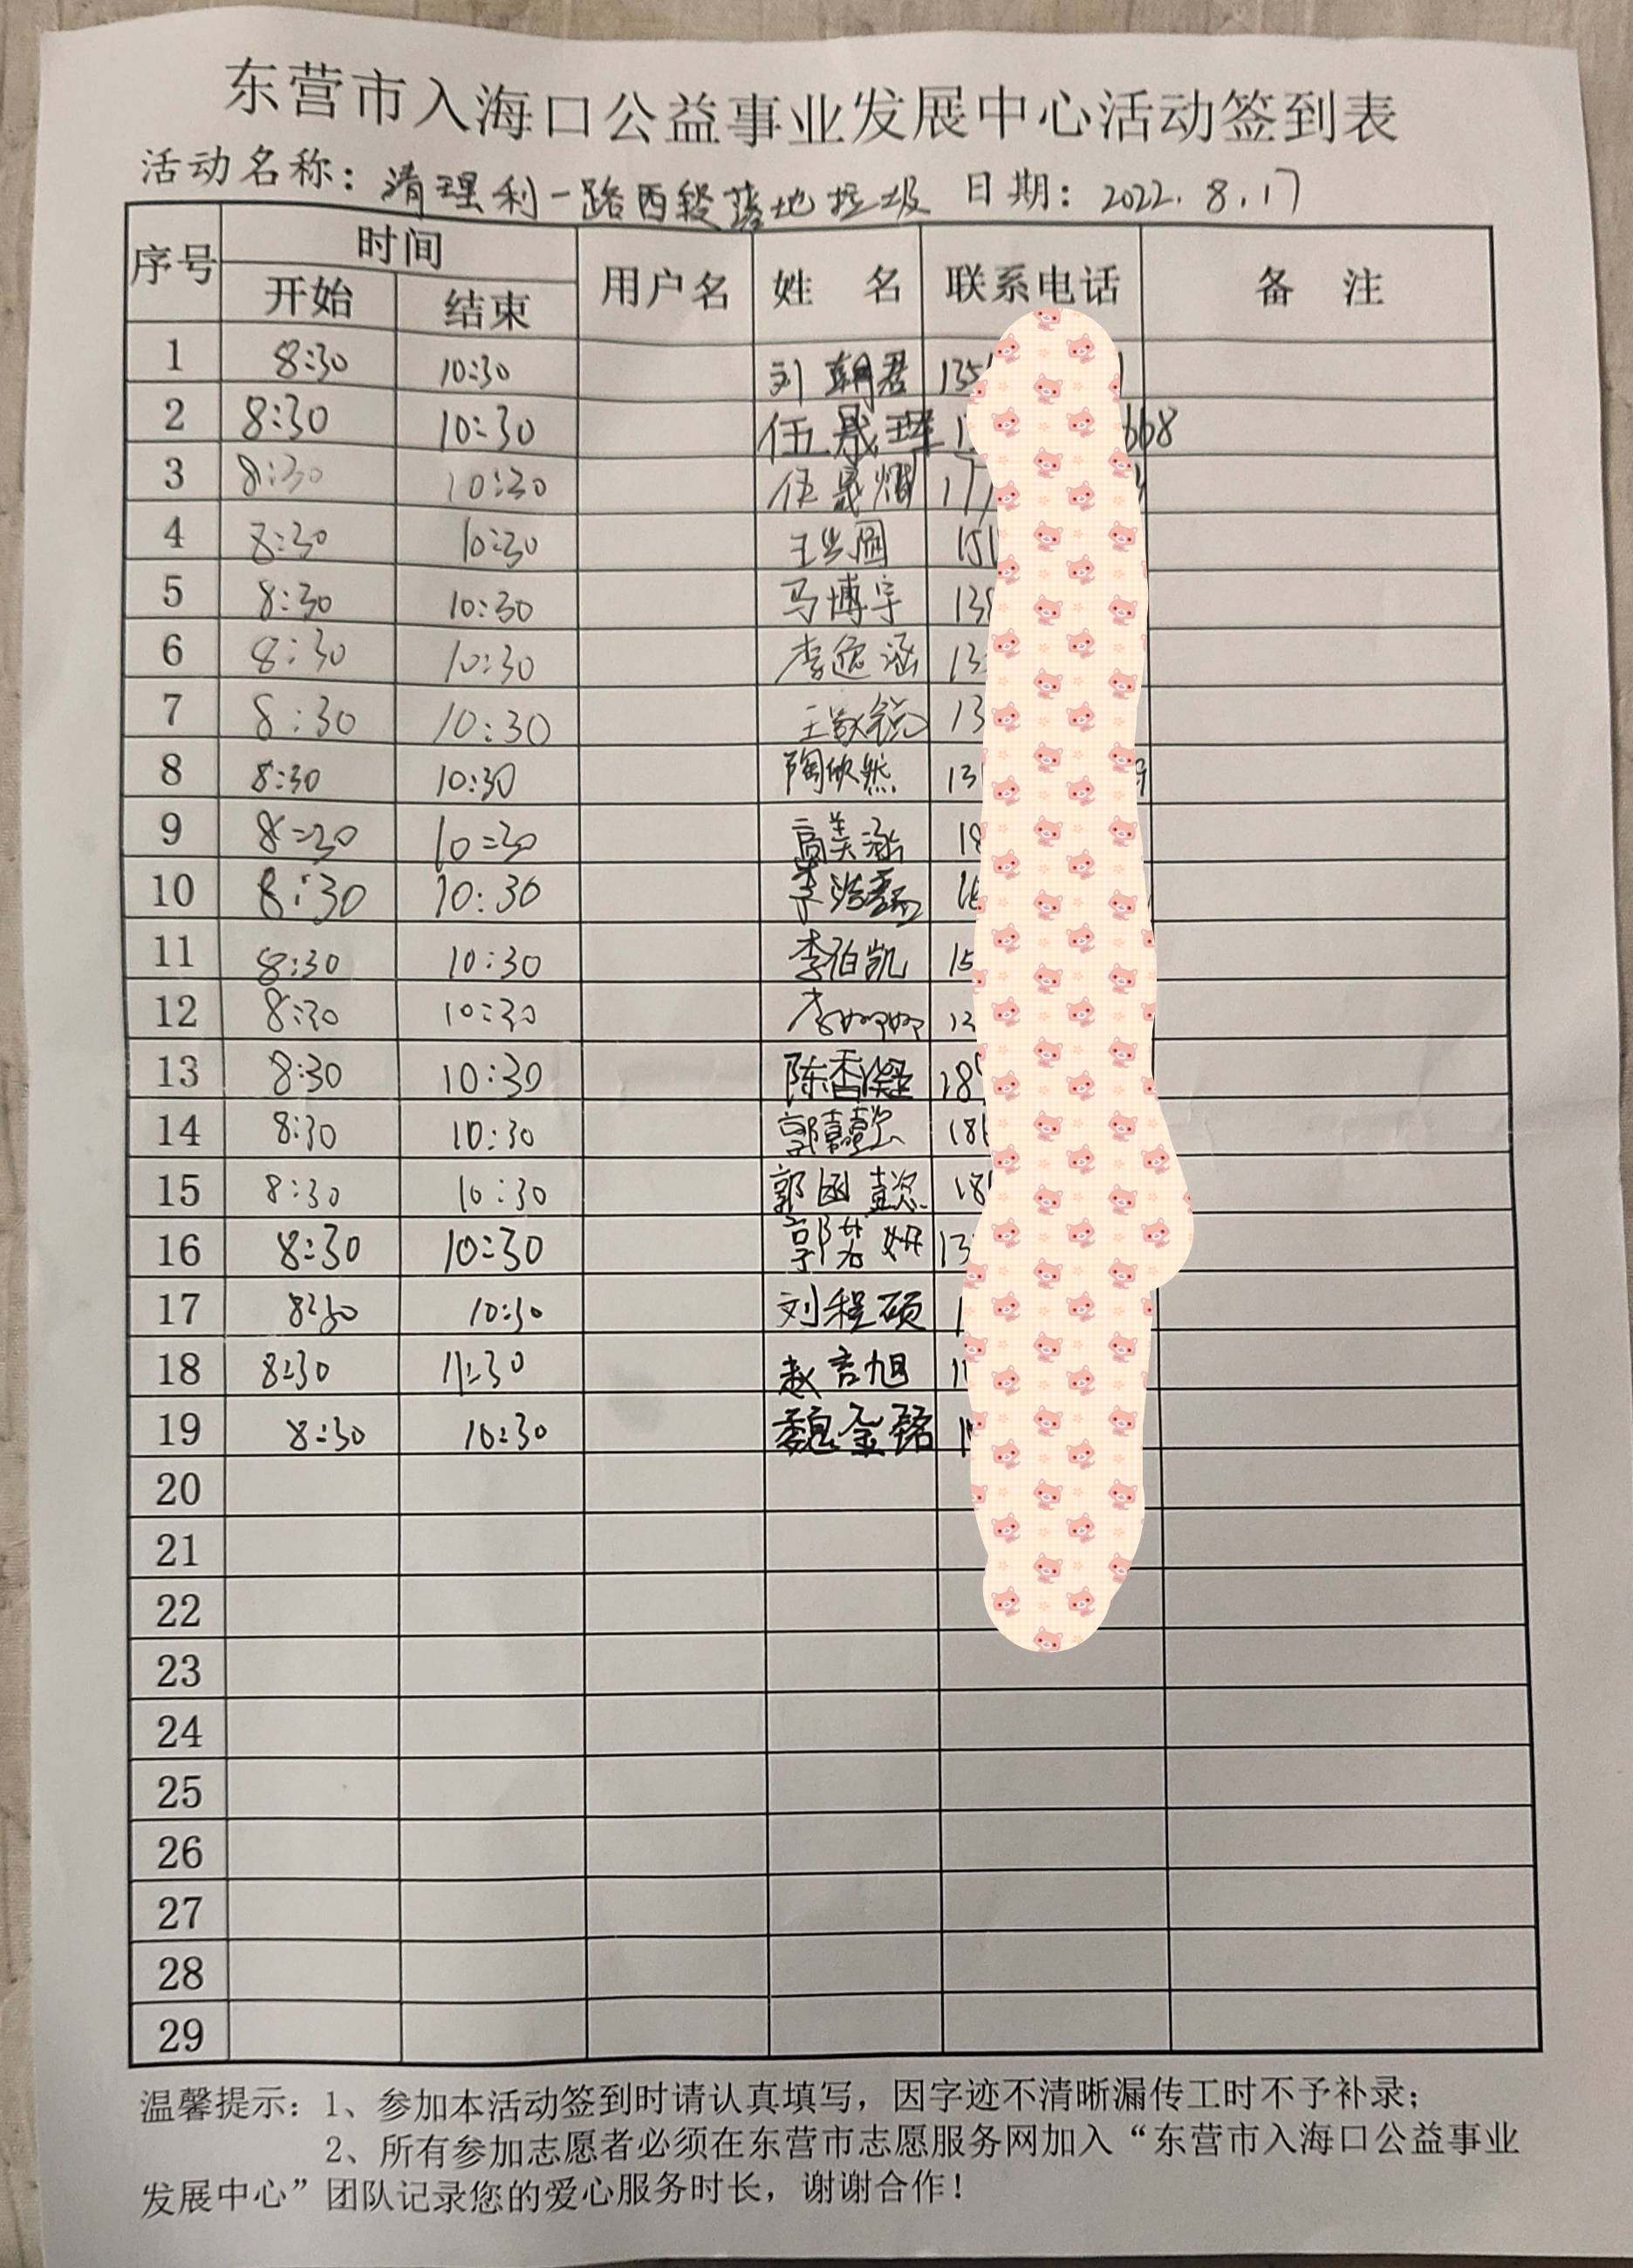 东营市入海口公益事业发展中心活动签到表
活动名称：清理利一路西段落地垃圾 日期：2022.8.17
序号 时间 用户名 姓 名 联系电话 备 注
开始 结束
1 8:30 10:30 刘朝君 135
2 8:30 10:30 伍晟珲 1 668
3 8:30 10:30 伍晟熠 177
4 8:30 10:30 王 圆 151
5 8:30 10:30 马博宇 138
6 8:30 10:30 李逸涵 13
7 8:30 10:30 王敬锐 13
8 8:30 10:30 陶欣然 131
9 8:30 10:30 高美涵 18
10 8:30 10:30 李浩 
11 8:30 10:30 李伯凯 15
12 8:30 10:30 李娜娜 13
13 8:30 10:30 陈香凝 18
14 8:30 10:30 郭嘉懿 18
15 8:30 10:30 郭函懿 18
16 8:30 10:30 郭若妍 13
17 8:30 10:30 刘程硕 1
18 8:30 11:30 赵言旭 1
19 8:30 10:30 魏金铭 1
20
21
22
23
24
25
26
27
28
29
温馨提示：1、参加本活动签到时请认真填写，因字迹不清晰漏传工时不予补录；
2、所有参加志愿者必须在东营市志愿服务网加入“东营市入海口公益事业
发展中心”团队记录您的爱心服务时长，谢谢合作！